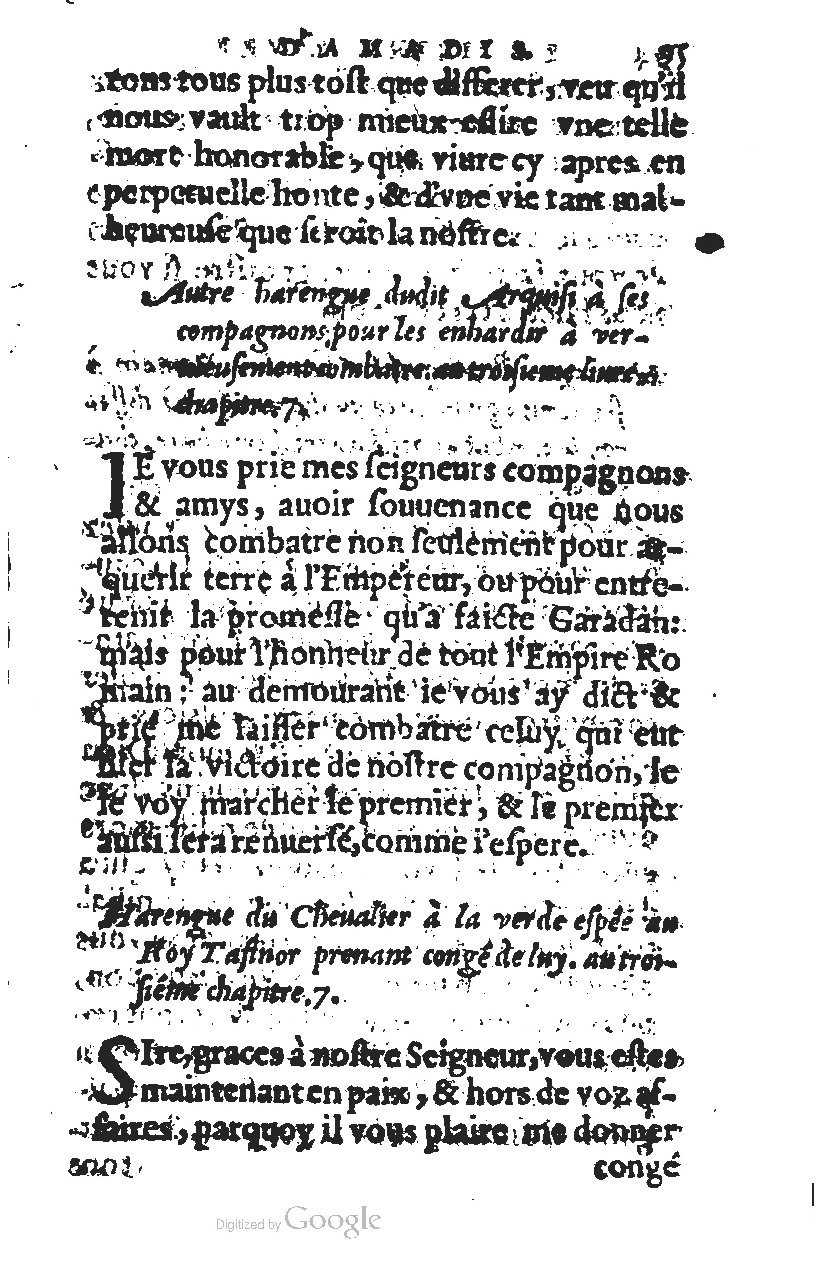 D'AMADIS. 95
rons tous plus tost que differer, veu qu'il
nous vault trop mieux eslire vne telle
mort honorable, que viure cy apres en
perpetuelle honte, & d'vne vie tant mal-
heureuse que seroit la nostre.
Autre harengue dudit Arquisi à ses
compagnons pour les enhardir à ver-
tueusement combatre. au troisieme liure,
chapitre. 7.
IE vous prie mes seigneurs compagnons
& amys, auoir souuenance que nous
allons combatre non seulement pour ac-
querir terre à l'Empereur, ou pour entre-
tenir la promesse qu'a faicte Garadan:
mais pour l'honneur de tout l'Empire Ro
main: au demourant ie vous ay dict &
prié me laisser combatre celuy, qui eut
hier la victoire de nostre compagnon, ie
le voy marcher le premier, & le premier
aussi sera renuersé, comme i'espere.
Harengue du Cheualier à la verde espée au
Roy Tafinor prenant congé de luy. au troi-
siéme chapitre. 7.
SIre, graces à nostre Seigneur, vous estes
maintenant en paix, & hors de voz af-
faires, parquoy il vous plaire me donner
congé
Digitized by Google